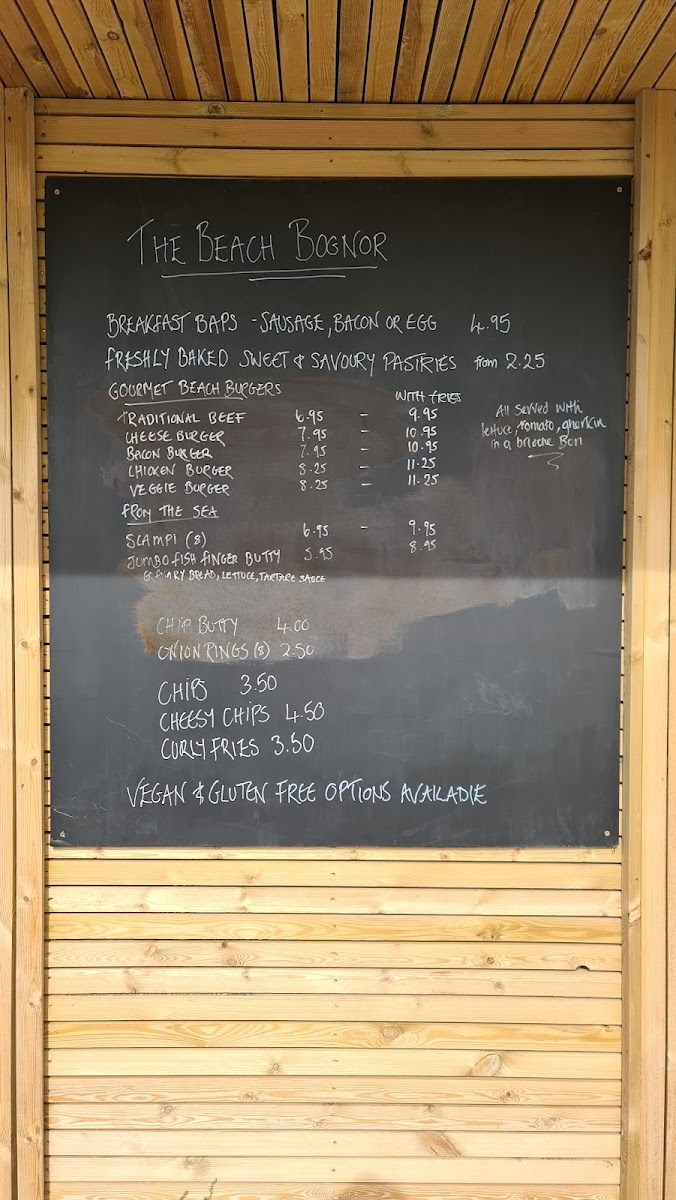 THE BEACH BOGNOR
BREAKFAST BAPS - SAUSAGE, BACON OR EGG 4.95
FRESHLY BAKED SWEET & SAVOURY PASTRIES from 2.25
GOURMET BEACH BURGERS WITH FRIES
TRADITIONAL BEEF 6.95 - 9.95
CHEESE BURGER 7.95 - 10.95
BACON BURGER 7.95 - 10.95
CHICKEN BURGER 8.25 - 11.25
VEGGIE BURGER 8.25 - 11.25
All served with
lettuce, tomato, gherkin
in a brioche bun
FROM THE SEA
SCAMPI (8) 6.95 - 9.95
JUMBO FISH FINGER BUTTY 5.95 8.95
GRANARY BREAD, LETTUCE, TARTARE SAUCE
CHIP BUTTY 4.00
ONION RINGS (8) 2.50
CHIPS 3.50
CHEESY CHIPS 4.50
CURLY FRIES 3.50
VEGAN & GLUTEN FREE OPTIONS AVAILABLE